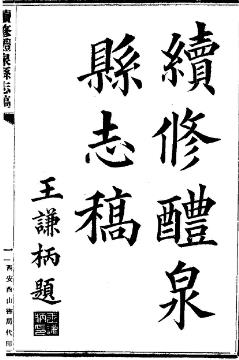 續修醴泉
縣志稿
王謙柄題
續修醴泉縣志稿
一
西安西山書局代印